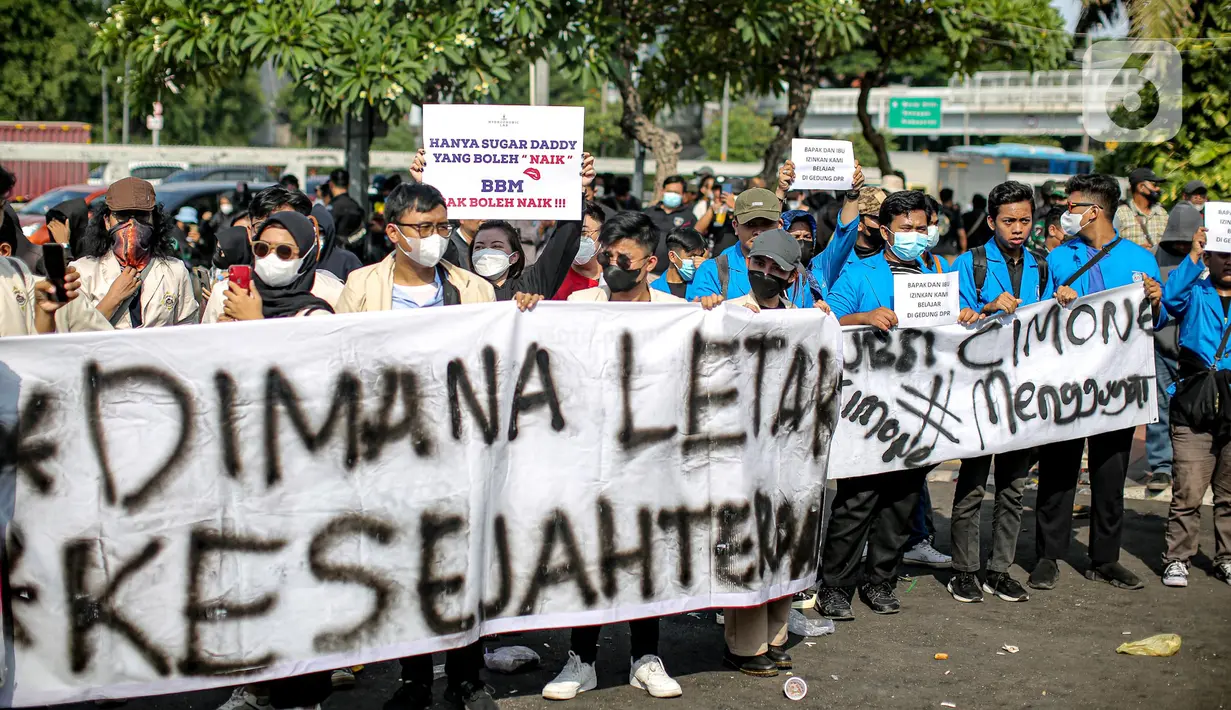 HANYA SUGAR DADDY
YANG BOLEH "NAIK"
BBM
GAK BOLEH NAIK !!!
BAPAK DAN IBU
IZINKAN KAMI
BELAJAR
DI GEDUNG DPR
BAPAK DAN IBU
IZINKAN KAMI
BELAJAR
DI GEDUNG DPR
DIMANA LETAK
KESEJAHTERAA
CIMONE
Menggugat